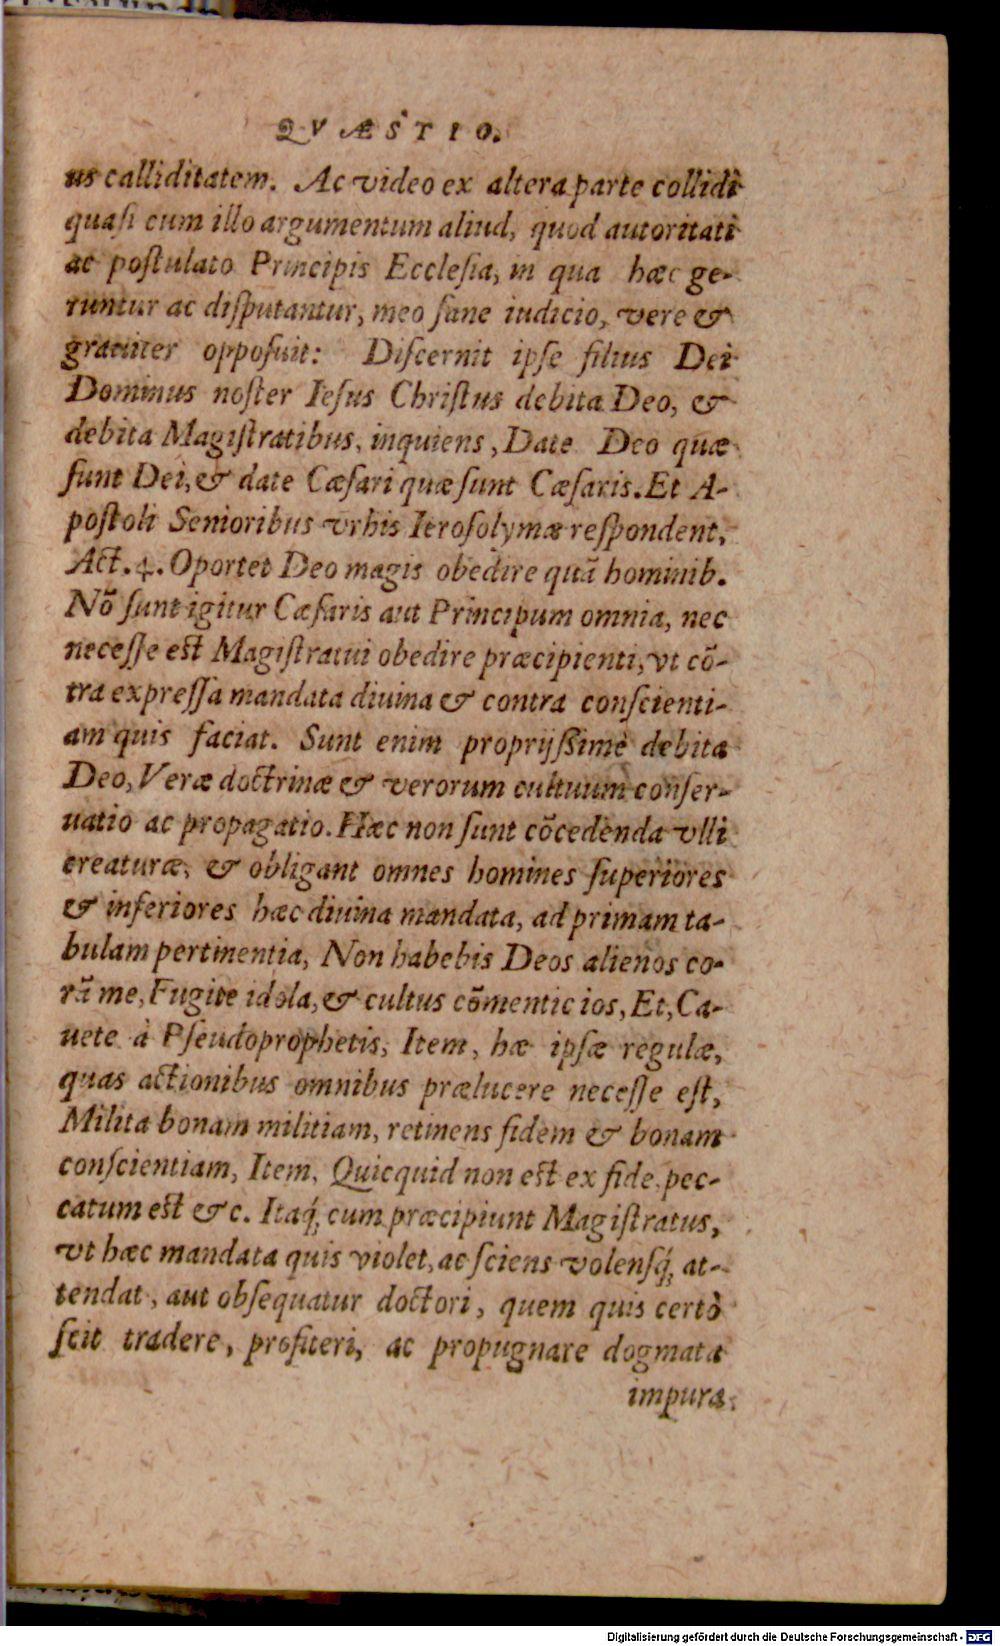 QVÆSTIO.
us calliditatem. Ac video ex altera parte collidi
quasi cum illo argumentum aliud, quod autoritati
ac postulato Principis Ecclesia, in qua hæc ge-
runtur ac disputantur, meo sane iudicio, vere &
grauiter opposuit: Discernit ipse filius Dei
Dominus noster Iesus Christus debita Deo, &
debita Magistratibus, inquiens, Date Deo quæ
sunt Dei, & date Cæsari quæ sunt Cæsaris. Et A-
postoli Senioribus vrbis Ierosolymæ respondent,
Act. 4. Oportet Deo magis obedire quã hominib.
Nõ sunt igitur Cæsaris aut Principum omnia, nec
necesse est Magistratui obedire præcipienti, vt cõ-
tra expressa mandata diuina & contra conscienti-
am quis faciat. Sunt enim proprijssimè debita
Deo, Veræ doctrinæ & verorum cultuum conser-
uatio ac propagatio. Hæc non sunt cõcedenda vlli
creaturæ, & obligant omnes homines superiores
& inferiores hæc diuina mandata, ad primam ta-
bulam pertinentia, Non habebis Deos alienos co-
rã me, Fugite idola, & cultus cõmenticios, Et, Ca-
uete à Pseudoprophetis, Item, hæ ipsæ regulæ,
quas actionibus omnibus prælucere necesse est,
Milita bonam militiam, retinens fidem & bonam
conscientiam, Item, Quicquid non est ex fide, pec-
catum est & c. Itaq́; cum præcipiunt Magistratus,
vt hæc mandata quis violet, ac sciens volensq́; at-
tendat, aut obsequatur doctori, quem quis certò
scit tradere, profiteri, ac propugnare dogmata
impura.
Digitalisierung gefördert durch die Deutsche Forschungsgemeinschaft - DFG